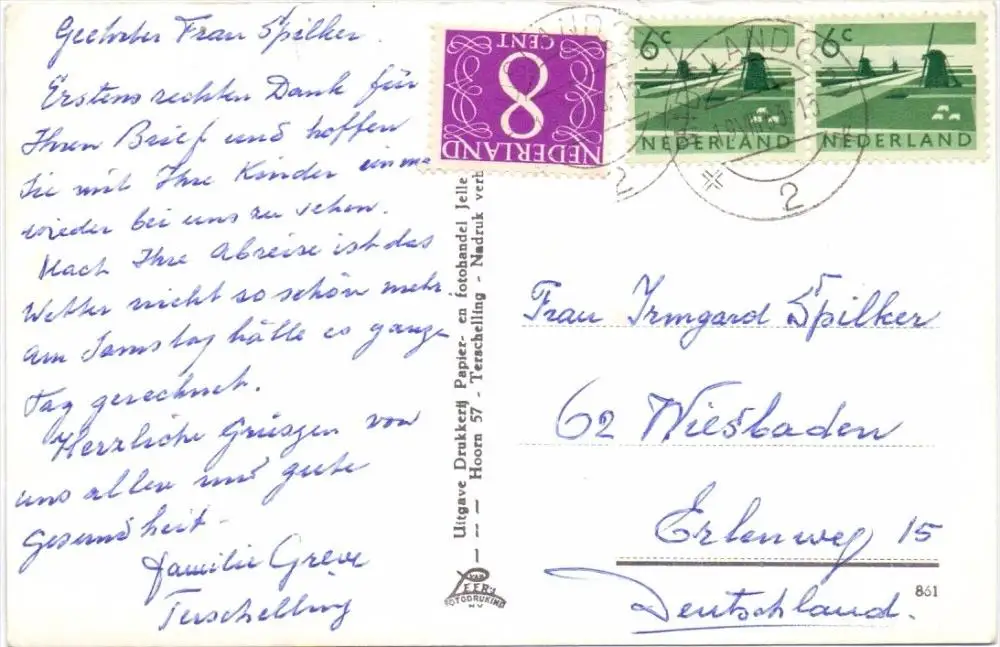 Geehrter Frau Spilker.
Erstens rechten Dank für
Ihren Brief und hoffen
Sie mit Ihre Kinder einma
wieder bei uns zu sehen.
Nach Ihre Abreise ist das
Wetter nicht so schön mehr.
am Samstag hätte es ganze
Tag gerechnet.
Herzliche Grüszen von
uns allen und gute
Gesundheit -
Familie Greve
Terschelling
8
CENT
NEDERLAND
6c
NEDERLAND
6c
NEDERLAND
2
2
Uitgave Drukkerij Papier- en fotohandel Jelle
Hoorn 57 - Terschelling - Nadruk verb
VAN LEER'S
FOTODRUKIND
N.V.
Frau Irmgard Spilker
62 Wiesbaden
Erlenweg 15
Deutschland.
861